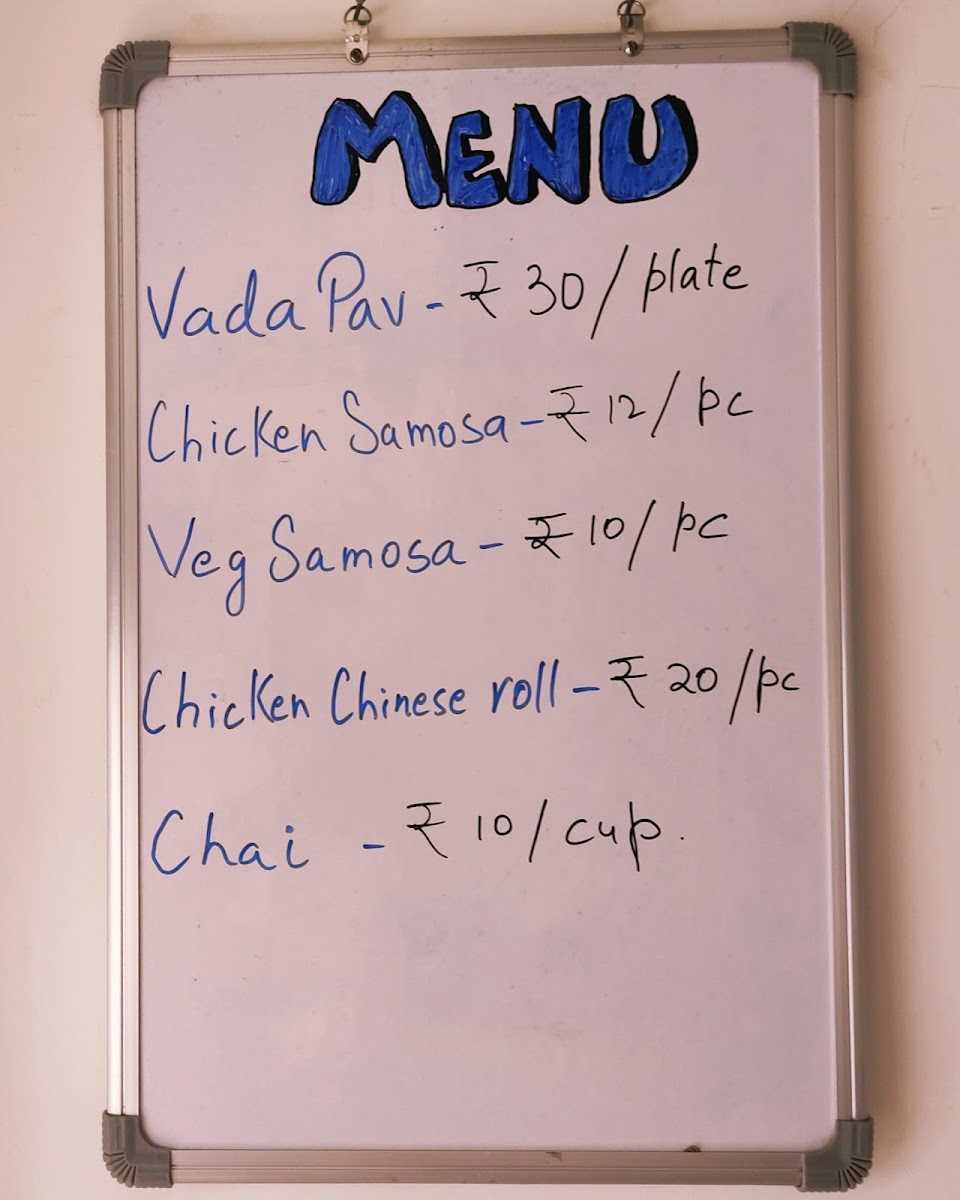 MENU
Vada Pav - ₹ 30 / plate
Chicken Samosa - ₹ 12 / pc
Veg Samosa - ₹ 10 / pc
Chicken Chinese roll - ₹ 20 / pc
Chai - ₹ 10 / cup.